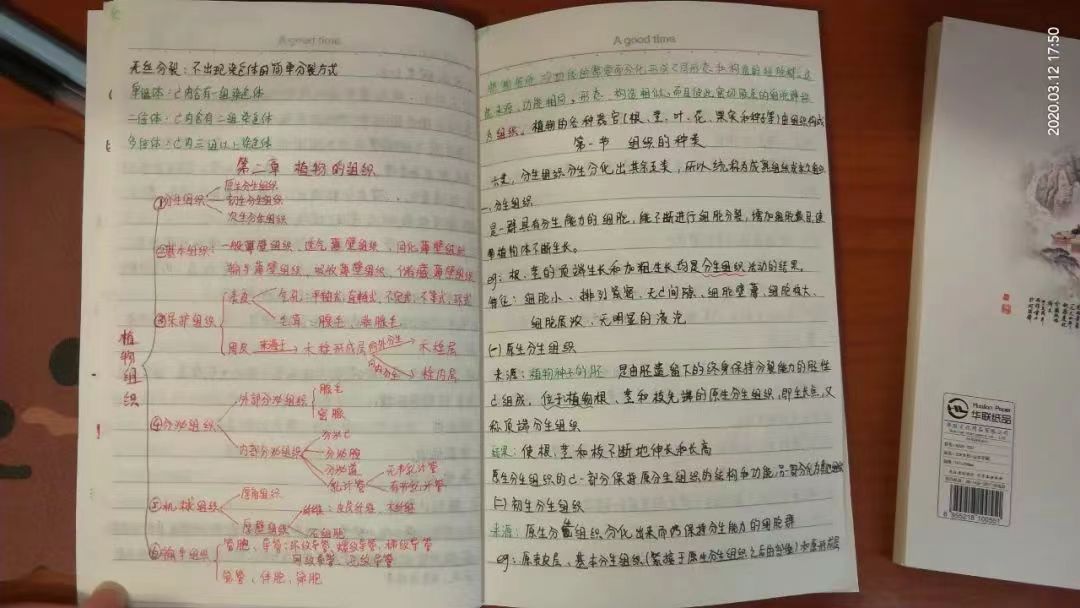 A good time
无丝分裂：不出现染色体的简单分裂方式
单倍体：C内含有一组染色体
二倍体：C内含有二组染色体
多倍体：C内三组以上染色体
第二章 植物的组织
植物组织
①分生组织
原生分生组织
初生分生组织
次生分生组织
②基本组织：一般薄壁组织、通气薄壁组织、同化薄壁组织
输导薄壁组织、吸收薄壁组织、储藏薄壁组织
③保护组织
表皮
气孔：平轴式、直轴式、不定式、不等式、环式
毛茸：腺毛、非腺毛
周皮 来源于 木栓形成层 向外分生 木栓层
向内分生 栓内层
④分泌组织
外部分泌组织
腺毛
蜜腺
内部分泌组织
分泌C
分泌腔
分泌道
乳汁管
无节乳汁管
有节乳汁管
⑤机械组织
厚角组织
厚壁组织
纤维：皮纤维、木纤维
石细胞
⑥输导组织
管胞、导管：环纹导管、螺纹导管、梯纹导管
网纹导管、孔纹导管
筛管、伴胞、筛胞
A good time
来源、功能相同，形态、构造相似，而且彼此密切联系的细胞群称
为组织。植物的各种器官（根、茎、叶、花、果实和种子等）由组织构成
第一节 组织的种类
六类，分生组织分生分化出其余五类，所以统称为成熟组织或永久组织
一、分生组织
是一群具有分生能力的细胞，能不断进行细胞分裂，增加细胞数目，使
植物体不断生长。
eg：根、茎的顶端生长和加粗生长均是分生组织活动的结果。
特征：细胞小、排列紧密、无C间隙、细胞壁薄、细胞核大、
细胞质浓、无明显的液泡
(一)原生分生组织
来源：植物种子的胚 是由胚遗留下的终身保持分裂能力的胚性
C组成，位于植物根、茎和枝先端的原生分生组织，即生长点，又
称顶端分生组织
结果：使根、茎和枝不断地伸长和长高
原生分生组织的C一部分保持原分生组织的结构和功能，另一部分分化为其他组织
(二)初生分生组织
来源：原生分生组织分化出来而仍保持分生能力的细胞群
eg：原表皮层、基本分生组织(紧接于原生分生组织之后的部位)和原形成层
2020.03.12 17:50
Hualian Paper
华联纸品